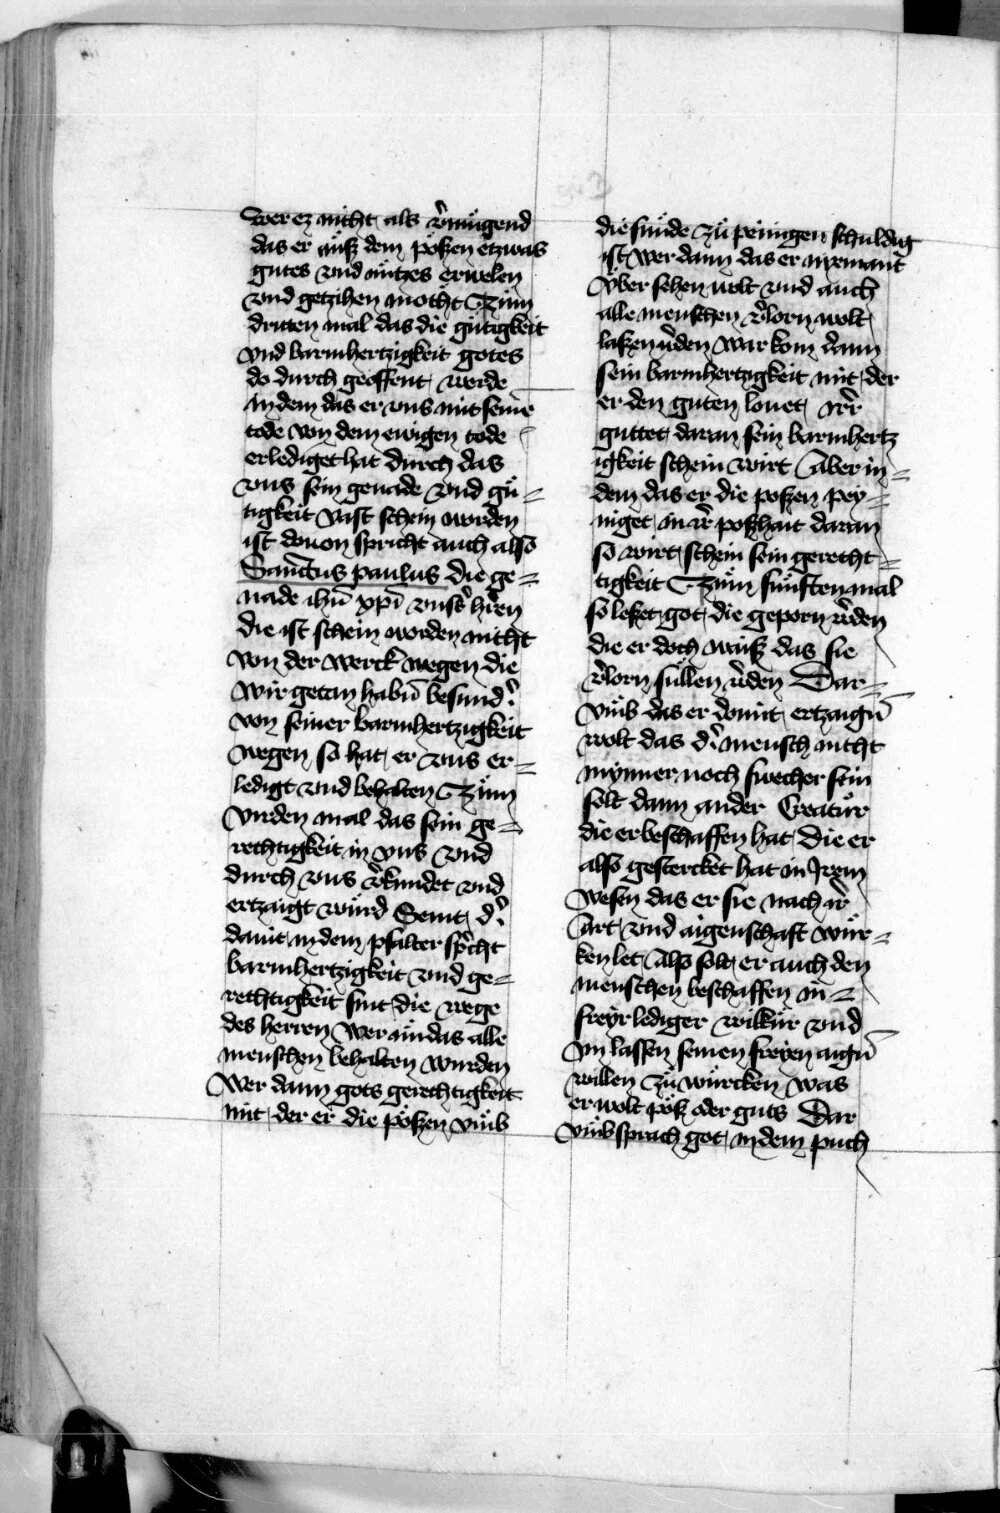 wer ez nicht als v̉mügend
das er auß dem pößen etzwas
gutes vnd nützes erwelen
vnd getzihen möcht Czům
dritten mal das die gütigkeit
vnd barmhertzigkeit gotes
do durch geoffent werde
in dem das er vns mit seinē
tode von dem ewigen tode
erlediget hat durch das
vns sein genade vnd gü=
tigkeit vast schein worden
ist douon spricht auch also
Sanctus paulus die ge=
nade ihū xp̄i vnsẻ h̉ren
die ist schein worden nicht
von der werck wegen die
wir getan habn̄ besund̉
von seiner barmhertzigkeit
wegen so hat er vns er=
ledigt vnd behalten Czům
virden mal das sein ge=
rechtigkeit in vns vnd
durch vns v̉kundet vnd
ertzaigt würd Seint d̉
dauit in dem psalter sp̉cht
barmhertzigkeit vnd ge=
rechtigkeit sint die wege
des herren Wer nu das alle
menschen behalten wurden
Wer dann gots gerechtigkeit
mit der er die pößen vmb
die sünde zů peinigen schuldig
ist wer dann das er nyemant
über sehen wolt vnd auch
alle menschen v̉lorn wolt
laßen w̉den war kom dann
sein barmhertzigkeit mit der
er den guten lonet irr̉
guttet daran sein barmhertz
igkeit schein wirt Aber in=
dem das er die poßen pey=
niget in ir̉ poßhait daran
so wirt schein sein gerecht=
tigkeit Czům fünften mal
so leßet got die geporn w̉den
die er doch waiß das sie
v̉lorn süllen w̉den Dar=
vmb das er domit ertzaign̄
wolt das d̉ mensch nicht
mynner noch swecher sein
solt dann ander Creatür
die er beschaffen hat die er
also gestercket hat in Irem
wesen das er sie nach ir̉
art vnd aigenschaft wür=
ken let Also solt er auch den
menschen beschaffen in=
freyr lediger wilkür vnd
im lassen seinen freyen aign̄
willen zů würcken was
er wolt pöß oder guts Dar
vmb sprach got in dem puch